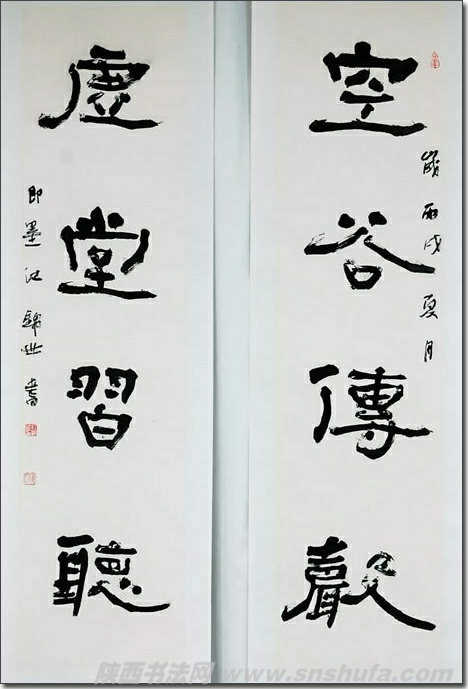 空谷傳聲
歲丙戌夏月
虛堂習聽
即墨 錦世書
陕西书法网 www.snshufa.com